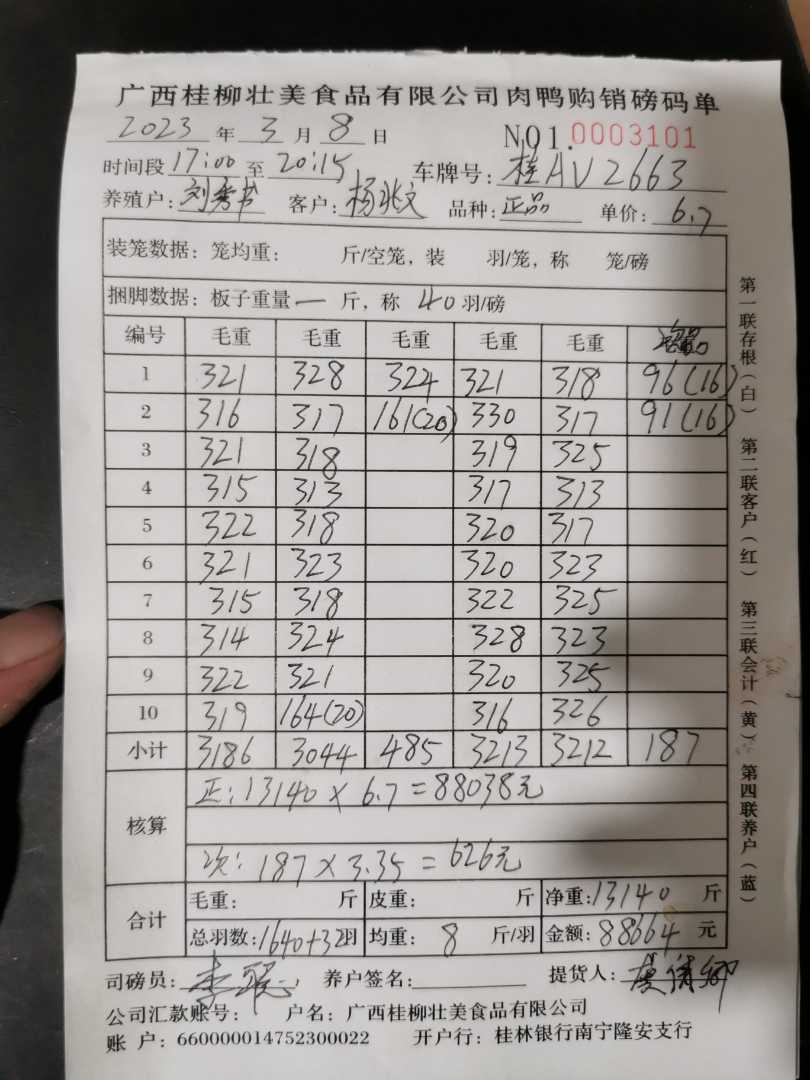 广西桂柳壮美食品有限公司肉鸭购销磅码单
2023 年 3 月 8 日 NO1.0003101
时间段 17:00 至 20:15 车牌号: 桂AV2663
养殖户: 刘秀书 客户: 杨兆文 品种: 正品 单价: 6.7
装笼数据: 笼均重: 斤/空笼, 装 羽/笼, 称 笼/磅
捆脚数据: 板子重量 一 斤, 称 40 羽/磅
编号 毛重 毛重 毛重 毛重 毛重
1 321 328 324 321 318 96(16)
2 316 317 161(20) 330 317 91(16)
3 321 318 319 325
4 315 313 317 313
5 322 318 320 317
6 321 323 320 323
7 315 318 322 325
8 314 324 328 323
9 322 321 320 325
10 319 164(20) 316 326
小计 3186 3044 485 3213 3212 187
核算
正: 13140 × 6.7 = 88038元
次: 187 × 3.35 = 626元
合计
毛重: 斤 皮重: 斤 净重: 13140 斤
总羽数: 1640+32羽 均重: 8 斤/羽 金额: 88664 元
司磅员: 养户签名: 提货人:
公司汇款账号: 户名: 广西桂柳壮美食品有限公司
账 户: 660000014752300022 开户行: 桂林银行南宁隆安支行
第一联存根(白) 第二联客户(红) 第三联会计(黄) 第四联养户(蓝)